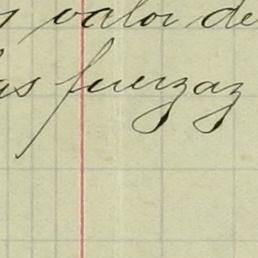 valor de
las fuerzaz